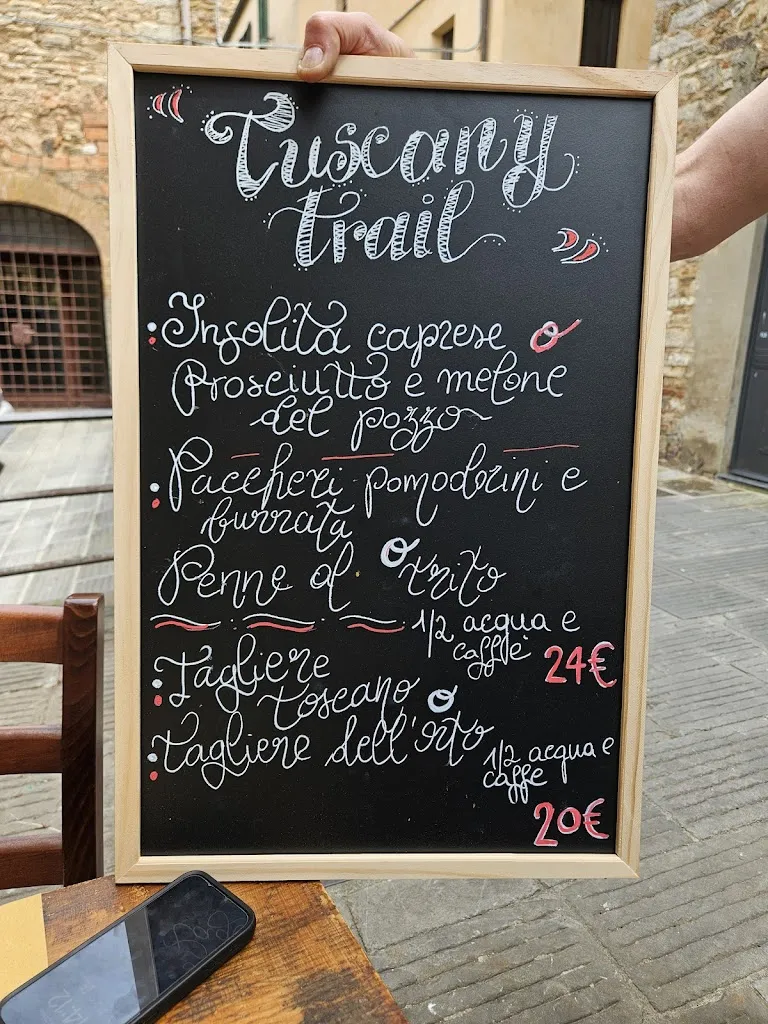 Tuscany
trail
Insolita caprese o
Prosciutto e melone
del pozzo
Paccheri pomodorini e
burrata
o
Penne al trito
1/2 acqua e
caffè 24€
Tagliere
toscano o
tagliere dell'orto
1/2 acqua e
caffe
20€